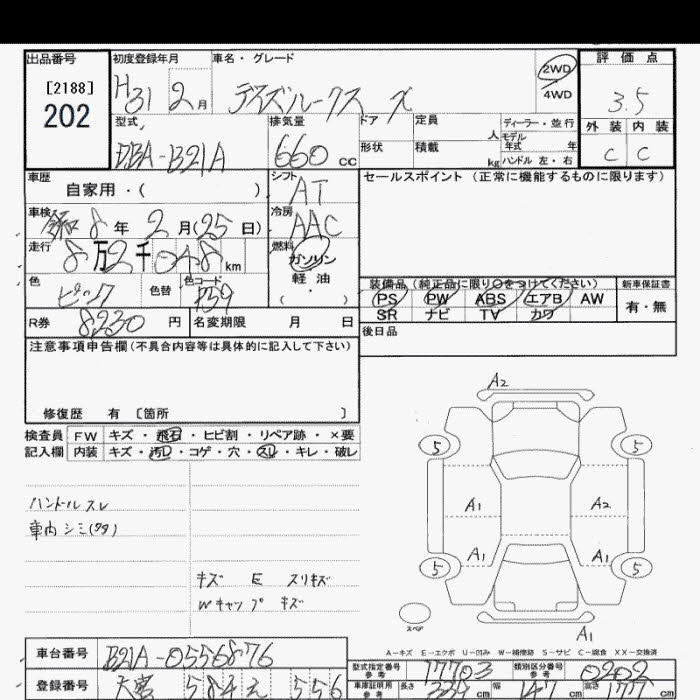 出品番号 初度登録年月 車名・グレード 2WD 評価点
[2188] H31 2月 デイズルークス X 4WD 3.5
202
型式 排気量 ドア 定員 人 ディーラー・並行 外装 内装
DBA-B21A 660 cc 形状 積載 kg モデル年式 年 C C
ハンドル 左・右
車歴 シフト セールスポイント (正常に機能するものに限ります)
自家用・( ) AT
車検 令和 8年 2月(25日) 冷房 AAC
走行 8万2千048km 燃料 ガソリン
軽油
(・)
色 ピンク 色替 色コード
装備品(純正品に限り○をつけてください) 新車保証書
PS PW ABS エアB AW 有・無
SR ナビ TV カワ
R券 8230円 名変期限 月 日 後日品
注意事項申告欄(不具合内容等は具体的に記入して下さい)
修復歴 有 〔箇所 〕
検査員 FW キズ・飛石・ヒビ割・リペア跡・×要
記入欄 内装 キズ・汚レ・コゲ・穴・スレ・キレ・破レ
ハンドル スレ
車内 シミ
キズ E スリキズ
Wキャップ キズ
A2
5 5
A1 A2
A1 A1
5 5
スペア
A1
A-キズ E-エクボ U-凹み W-補修跡 S-サビ C-腐食 XX-交換済
車台番号 B21A-0556876
型式指定番号 参考 17703 類別区分番号 参考 0202
登録番号 大宮 584 え 556
車庫証明用 参考 長さ 339cm 幅 147cm 高さ 177cm